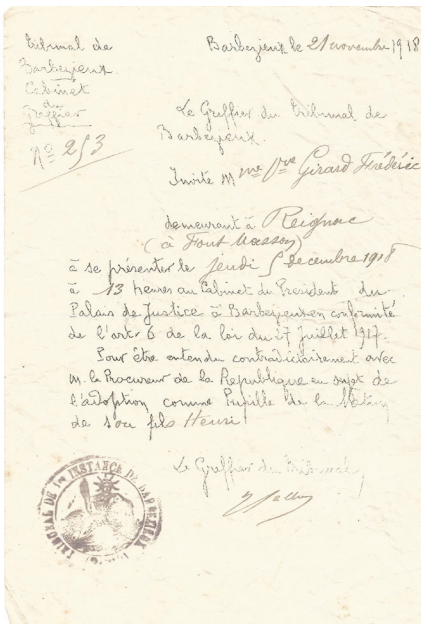 Tribunal de
Barbezieux
Cabinet
du
Greffier
No 253
Barbezieux le 21 novembre 1918
Le Greffier du Tribunal de
Barbezieux
Invite Mme Vve Girard Frédéric
demeurant à Reignac
(à Font Masson)
à se présenter le jeudi 5 décembre 1918
à 13 heures au Cabinet du President du
Palais de Justice à Barbezieux en conformité
de l'art 6 de la loi du 27 Juillet 1917.
Pour être entendu contradictoirement avec
M. le Procureur de la Republique au sujet de
l'adoption comme Pupille de la Nation
de son fils Henri
Le Greffier du Tribunal,
TRIBUNAL DE 1re INSTANCE DE BARBEZIEUX